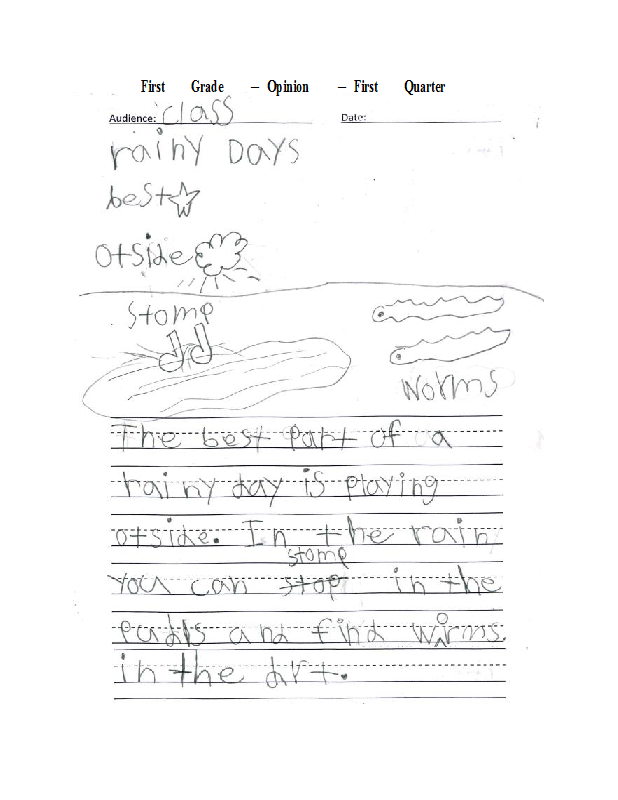 First Grade – Opinion – First Quarter
Audience: class Date:
rainy DAYS
best
otside
Stomp
Worms
The best part of a
rainy day is playing
otside. In the rain
stomp
you can stop in the
pudls and find worms.
in the drt.